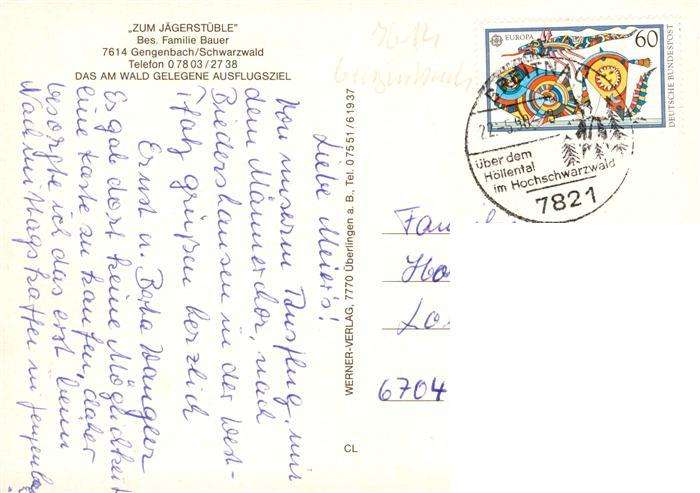 „ZUM JÄGERSTÜBLE"
Bes. Familie Bauer
7614 Gengenbach/Schwarzwald
Telefon 0 78 03 / 27 38
DAS AM WALD GELEGENE AUSFLUGSZIEL
Liebe Meier's!
Von unserem Ausflug mit
dem Männerchor, nach
Biedershausen in der West-
pfalz grüßen herzlich
Ernst u. Wangler
Es gab dort keine Möglichkeit
eine Karte zu kaufen, daher
besorgte ich das erst beim
Nachmittagskaffee in
WERNER-VERLAG, 7770 Überlingen a. B., Tel. 0 75 51 / 6 19 37
CL
7614
EUROPA
60
DEUTSCHE BUNDESPOST
BREITNAU
über dem
Höllental
im Hochschwarzwald
7821
Fam
Ho
6704